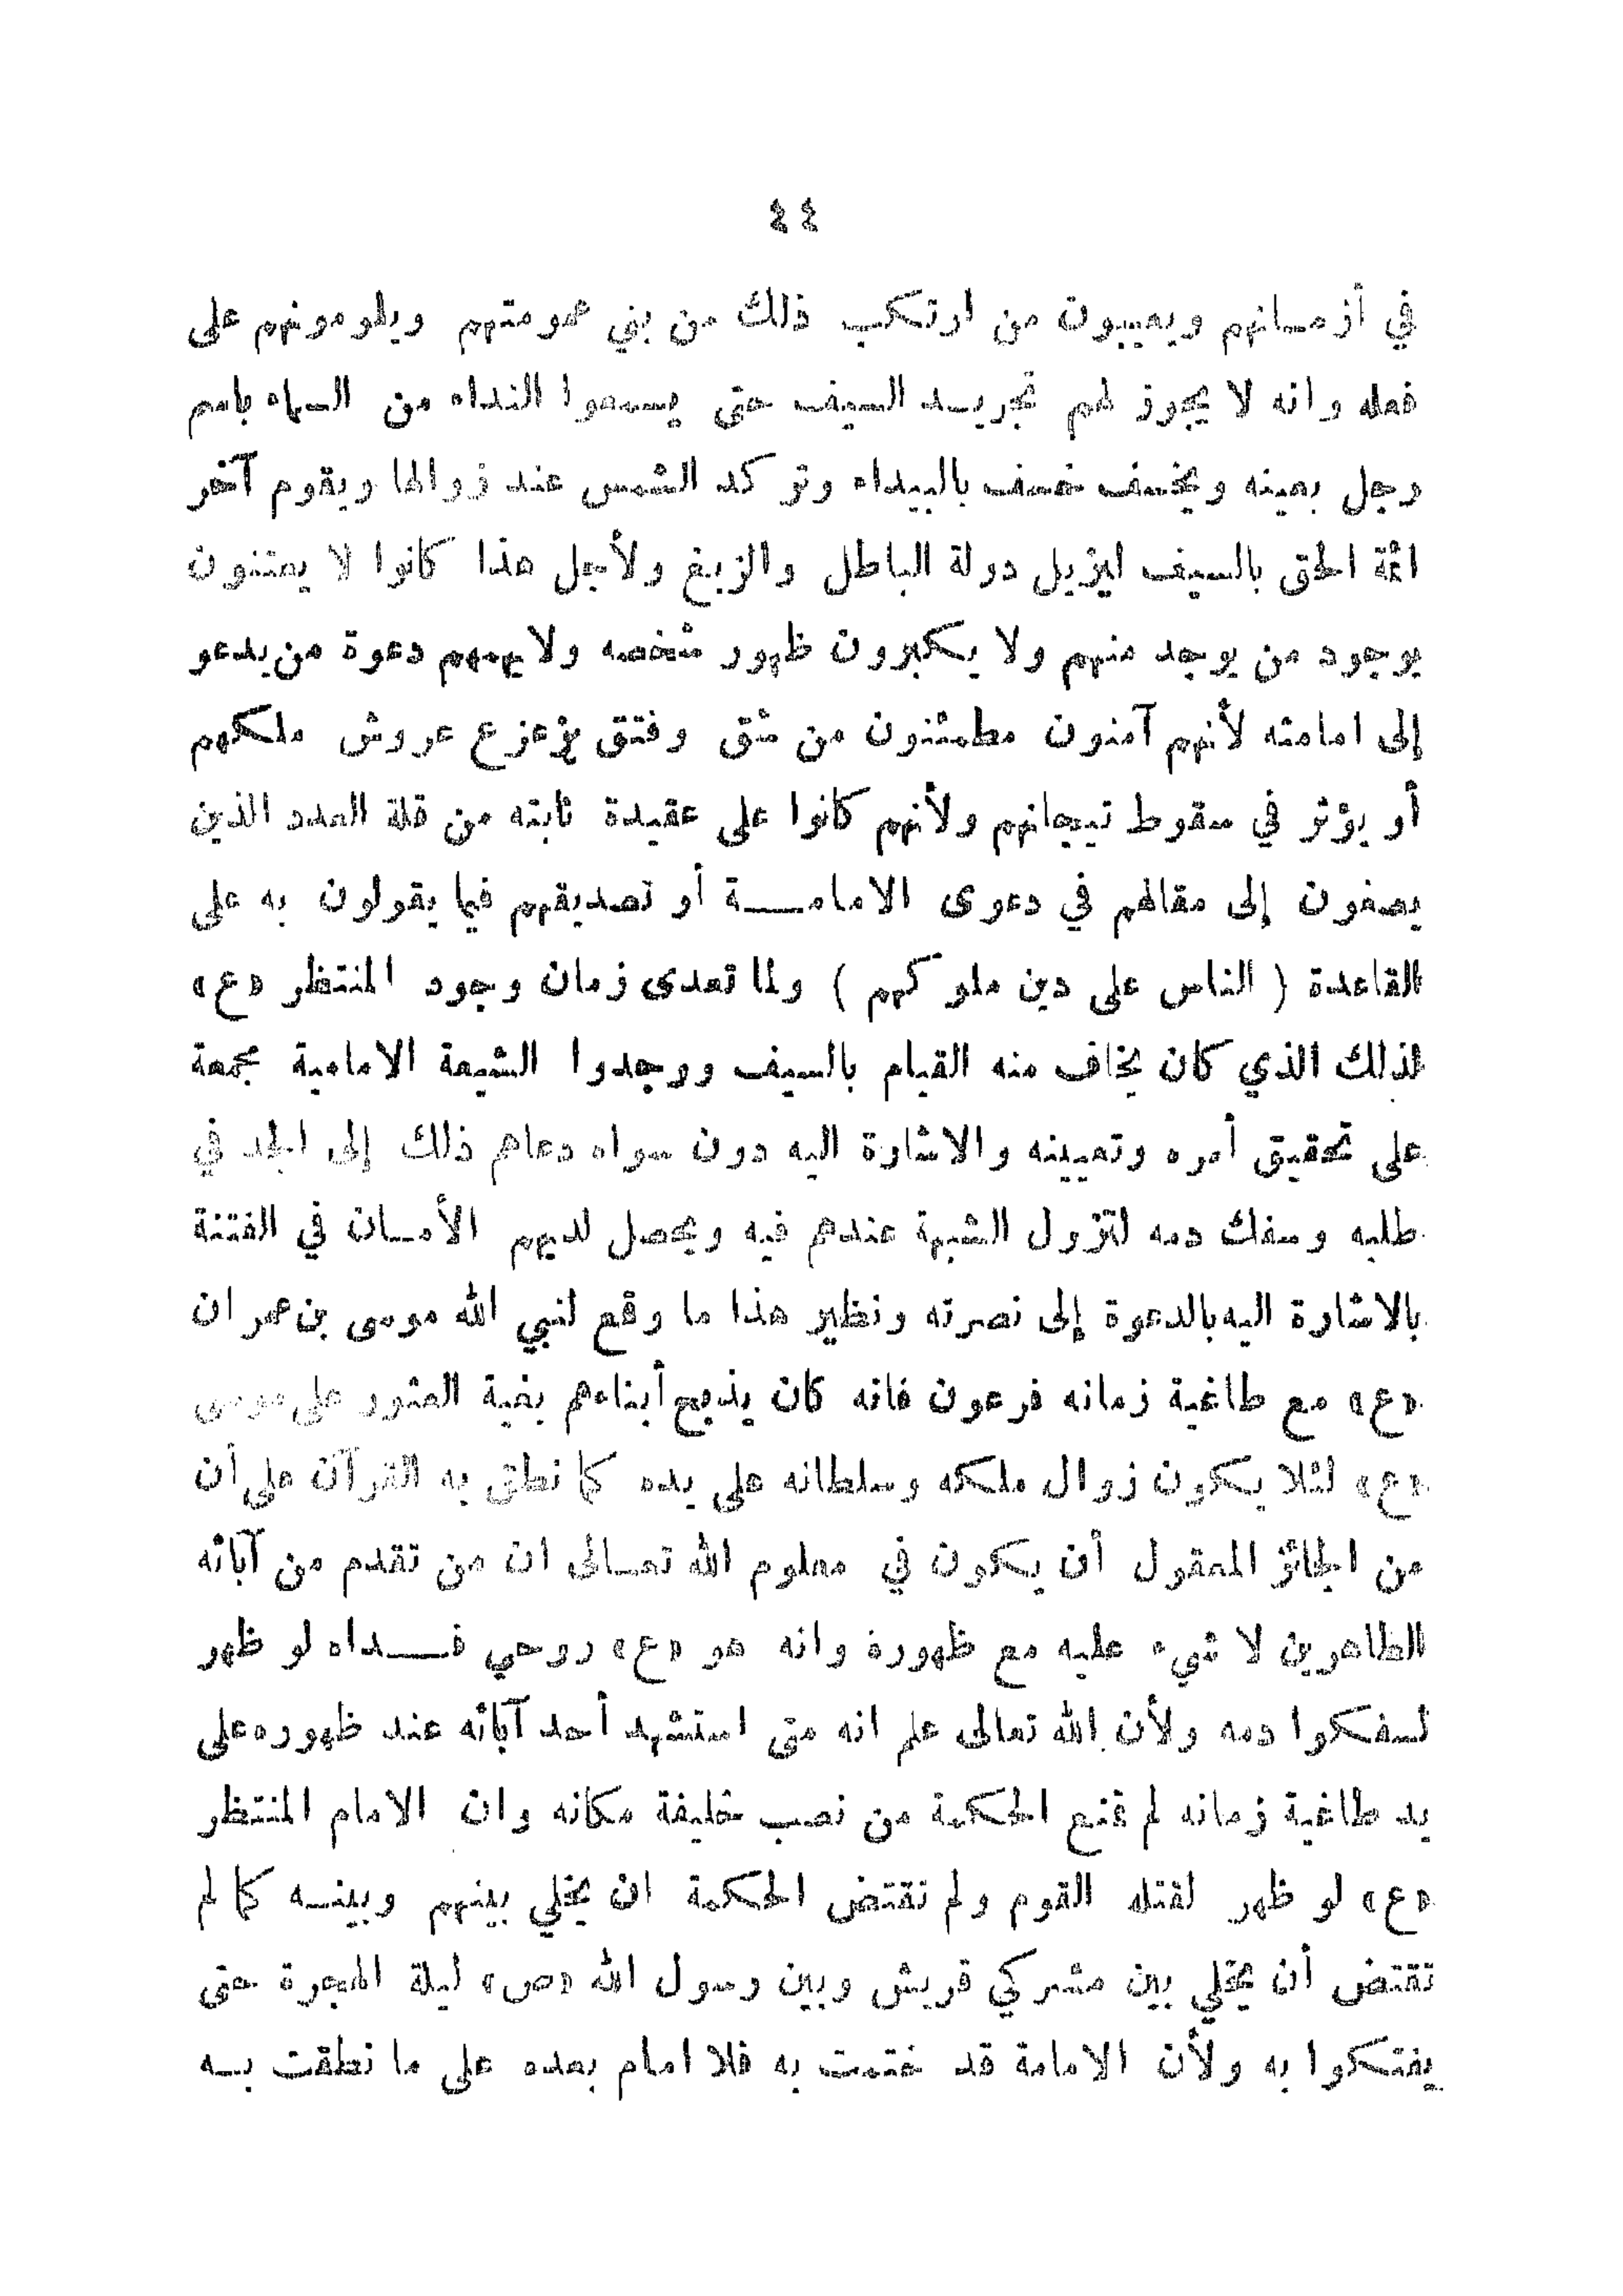 ٤٤
في أزمانهم ويعيبون من ارتكب ذلك من بني عمومتهم ويلومونهم على
فعله وانه لا يجوز لهم تجريد السيف حتى يسمعوا النداء من السماء باسم
رجل بعينه ويخسف خسف بالبيداء وتركد الشمس عند زوالها ويقوم آخر
ائمة الحق بالسيف ليزيل دولة الباطل والزيغ ولأجل هذا كانوا لا يعتنون
بوجود من يوجد منهم ولا يكبرون ظهور شخصه ولا يهمهم دعوة من يدعو
إلى امامته لأنهم آمنون مطمئنون من شق وفتق يزعزع عروش ملكهم
أو يؤثر في سقوط تيجانهم ولأنهم كانوا على عقيدة ثابته من قلة العدد الذين
يصغون إلى مقالهم في دعوى الامامة أو تصديقهم فيما يقولون به على
القاعدة ( الناس على دين ملوكهم ) ولما تعدى زمان وجود المنتظر «ع»
لذلك الذي كان يخاف منه القيام بالسيف ووجدوا الشيعة الامامية مجمعة
على تحقيق أمره وتعيينه والاشارة اليه دون سواه دعاهم ذلك إلى الجد في
طلبه وسفك دمه لتزول الشبهة عندهم فيه ويحصل لديهم الأمان في الفتنة
بالاشارة اليه بالدعوة إلى نصرته ونظير هذا ما وقع لنبي الله موسى بن عمران
«ع» مع طاغية زمانه فرعون فانه كان يذبح أبناءهم بغية العثور على موسى
«ع» لئلا يكون زوال ملكه وسلطانه على يده كما نطق به القرآن على أن
من الجائز المعقول أن يكون في معلوم الله تعالى ان من تقدم من آبائه
الطاهرين لا شيء عليه مع ظهوره وانه هو «ع» روحي فداه لو ظهر
لسفكوا دمه ولأن الله تعالى علم انه متى استشهد أحد آبائه عند ظهوره على
يد طاغية زمانه لم تمنع الحكمة من نصب خليفة مكانه وان الامام المنتظر
«ع» لو ظهر لقتله القوم ولم تقتض الحكمة ان يخلي بينهم وبينه كما لم
تقتض أن يخلي بين مشركي قريش وبين رسول الله «ص» ليلة الهجرة حتى
يفتكوا به ولأن الامامة قد ختمت به فلا امام بعده على ما نطقت به